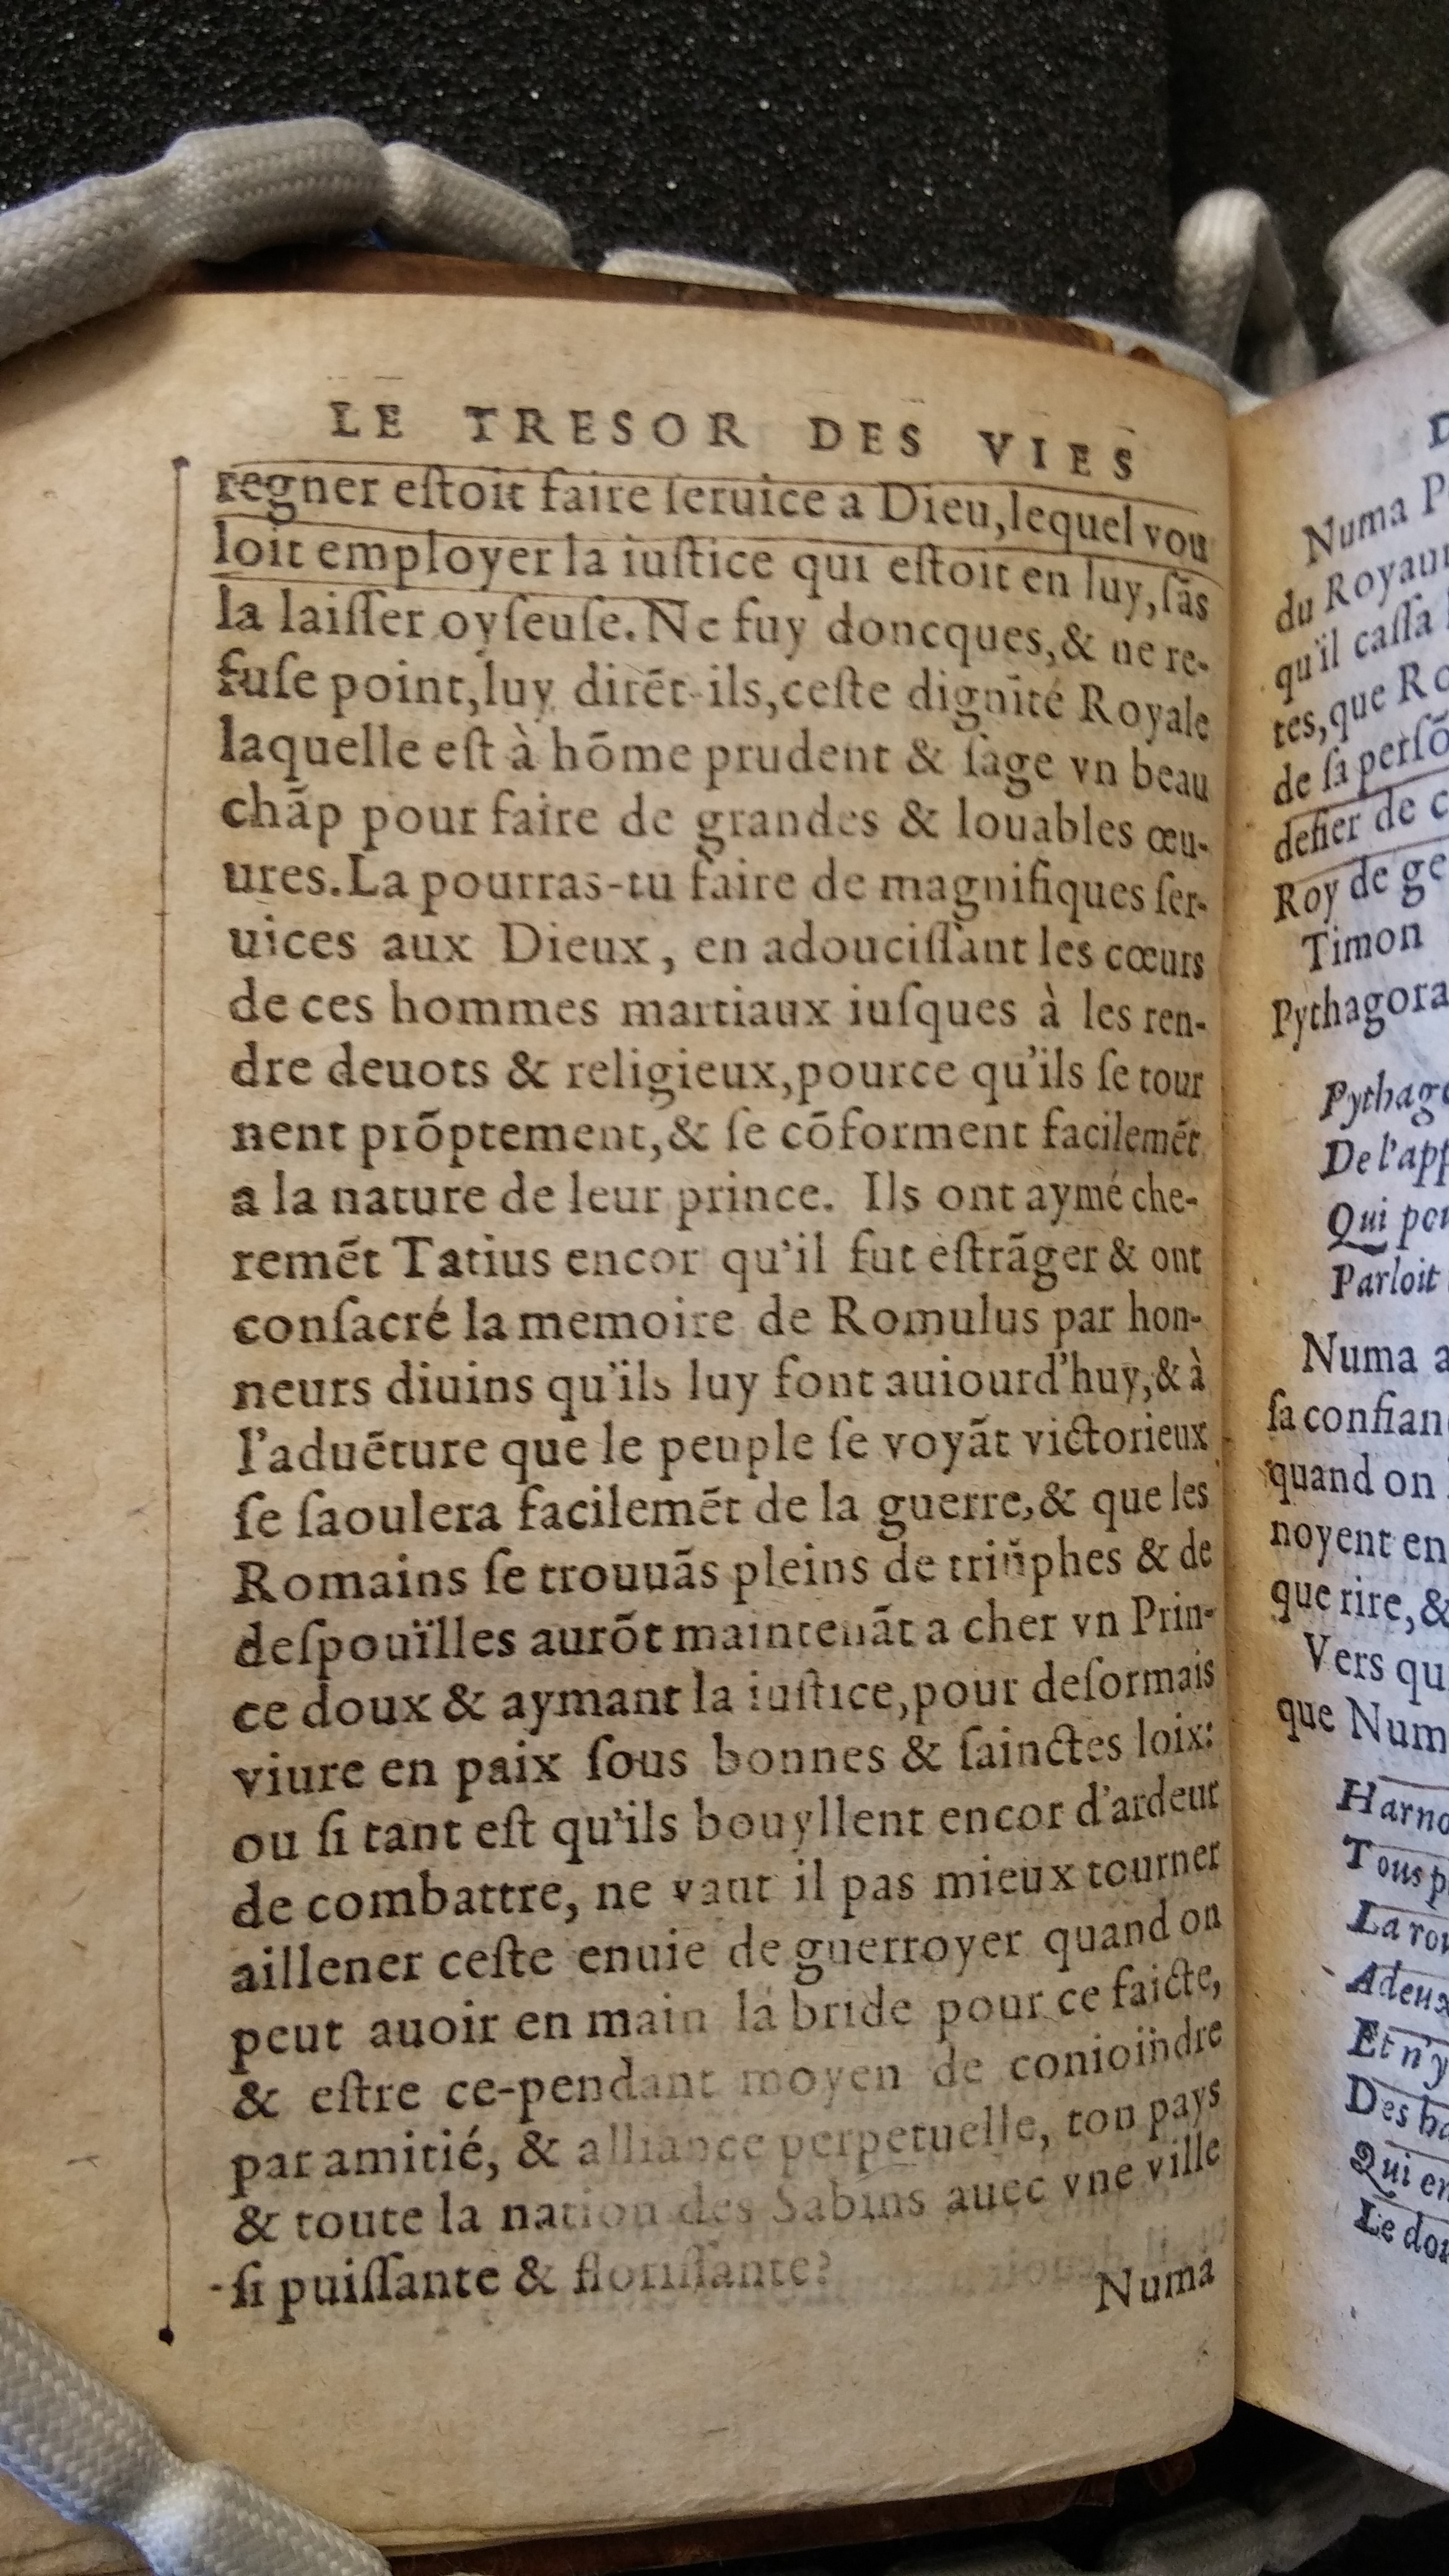 LE TRESOR DES VIES
regner eſtoit faire ſeruice a Dieu,lequel vou
loit employer la iuſtice qui eſtoit en luy,ſãs
la laiſſer oyſeuſe.Ne fuy doncques,& ne re-
fuſe point,luy dirẽt-ils,ceſte dignité Royale
laquelle eſt à hõme prudent & ſage vn beau
chãp pour faire de grandes & louables œu-
ures.La pourras-tu faire de magnifiques ſer-
uices aux Dieux, en adouciſſant les cœurs
de ces hommes martiaux iuſques à les ren-
dre deuots & religieux,pource qu'ils ſe tour
nent prõptement,& ſe cõforment facilemẽt
a la nature de leur prince. Ils ont aymé che-
remẽt Tatius encor qu'il fut eſtrãger & ont
conſacré la memoire de Romulus par hon-
neurs diuins qu'ils luy font auiourd'huy,& à
l'aduẽture que le peuple ſe voyãt victorieux
ſe ſaoulera facilemẽt de la guerre,& que les
Romains ſe trouuãs pleins de triũphes & de
deſpouïlles aurõt maintenãt a cher vn Prin-
ce doux & aymant la iuſtice,pour deſormais
viure en paix ſous bonnes & ſainctes loix:
ou ſi tant eſt qu'ils bouyllent encor d'ardeur
de combattre, ne vaut il pas mieux tourner
aillener ceſte enuie de guerroyer quand on
peut auoir en main la bride pour ce faicte,
& eſtre ce-pendant moyen de conioindre
par amitié, & alliance perpetuelle, ton pays
& toute la nation des Sabins auec vne ville
ſi puiſſante & floriſſante?
Numa
Numa P
du Royaum
qu'il caſſa
tes,que Ro
de ſa perſõ
defier de c
Roy de ge
Timon
Pythagora
Pythago
De l'app
Qui pou
Parloit
Numa a
ſa confian
quand on
noyent en
que rire,&
Vers qu
que Num
Harno
Tous p
La rou
A deux
Et n'y
Des ha
Qui en
Le dou